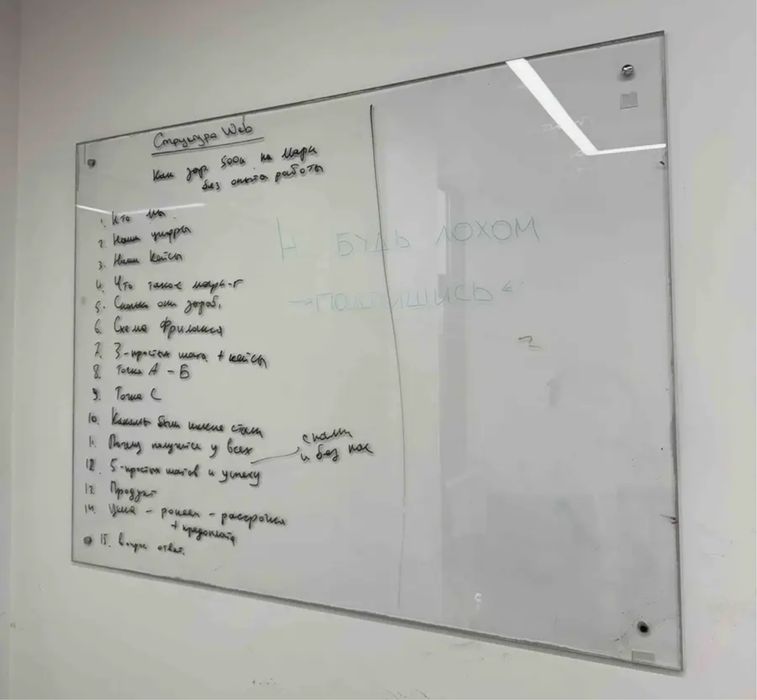 Структура Web
Как зар 500к на Марк
без опыта работы
1. Кто мы
2. Наши цифры
3. Наши кейсы
4. Что такое марк-г
5. Сколько они зараб.
6. Схема Фриланса
7. 3-простых шага + кейсы
8. Точка А - Б
9. Точка С
10. Какими были какие стали
11. Почему получится у всех
12. 5-простых шагов к успеху
с нами
и без нас
13. Продукт
14. Цена - рассрочка
+ предоплата
15. Вопрос ответ.
Н БУДЬ ЛОХОМ
→ ПОДПИШИСЬ ←